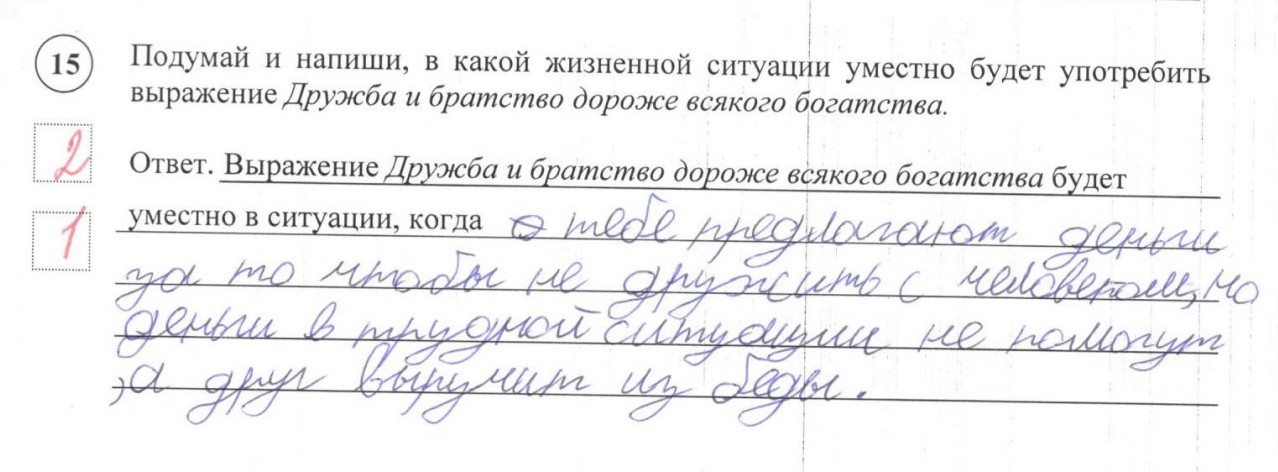 15 Подумай и напиши, в какой жизненной ситуации уместно будет употребить
выражение Дружба и братство дороже всякого богатства.
2
Ответ. Выражение Дружба и братство дороже всякого богатства будет
1
уместно в ситуации, когда тебе предлагают деньги
за то чтобы не дружить с человеком, но
деньги в трудной ситуации не помогут
, а друг выручит из беды.